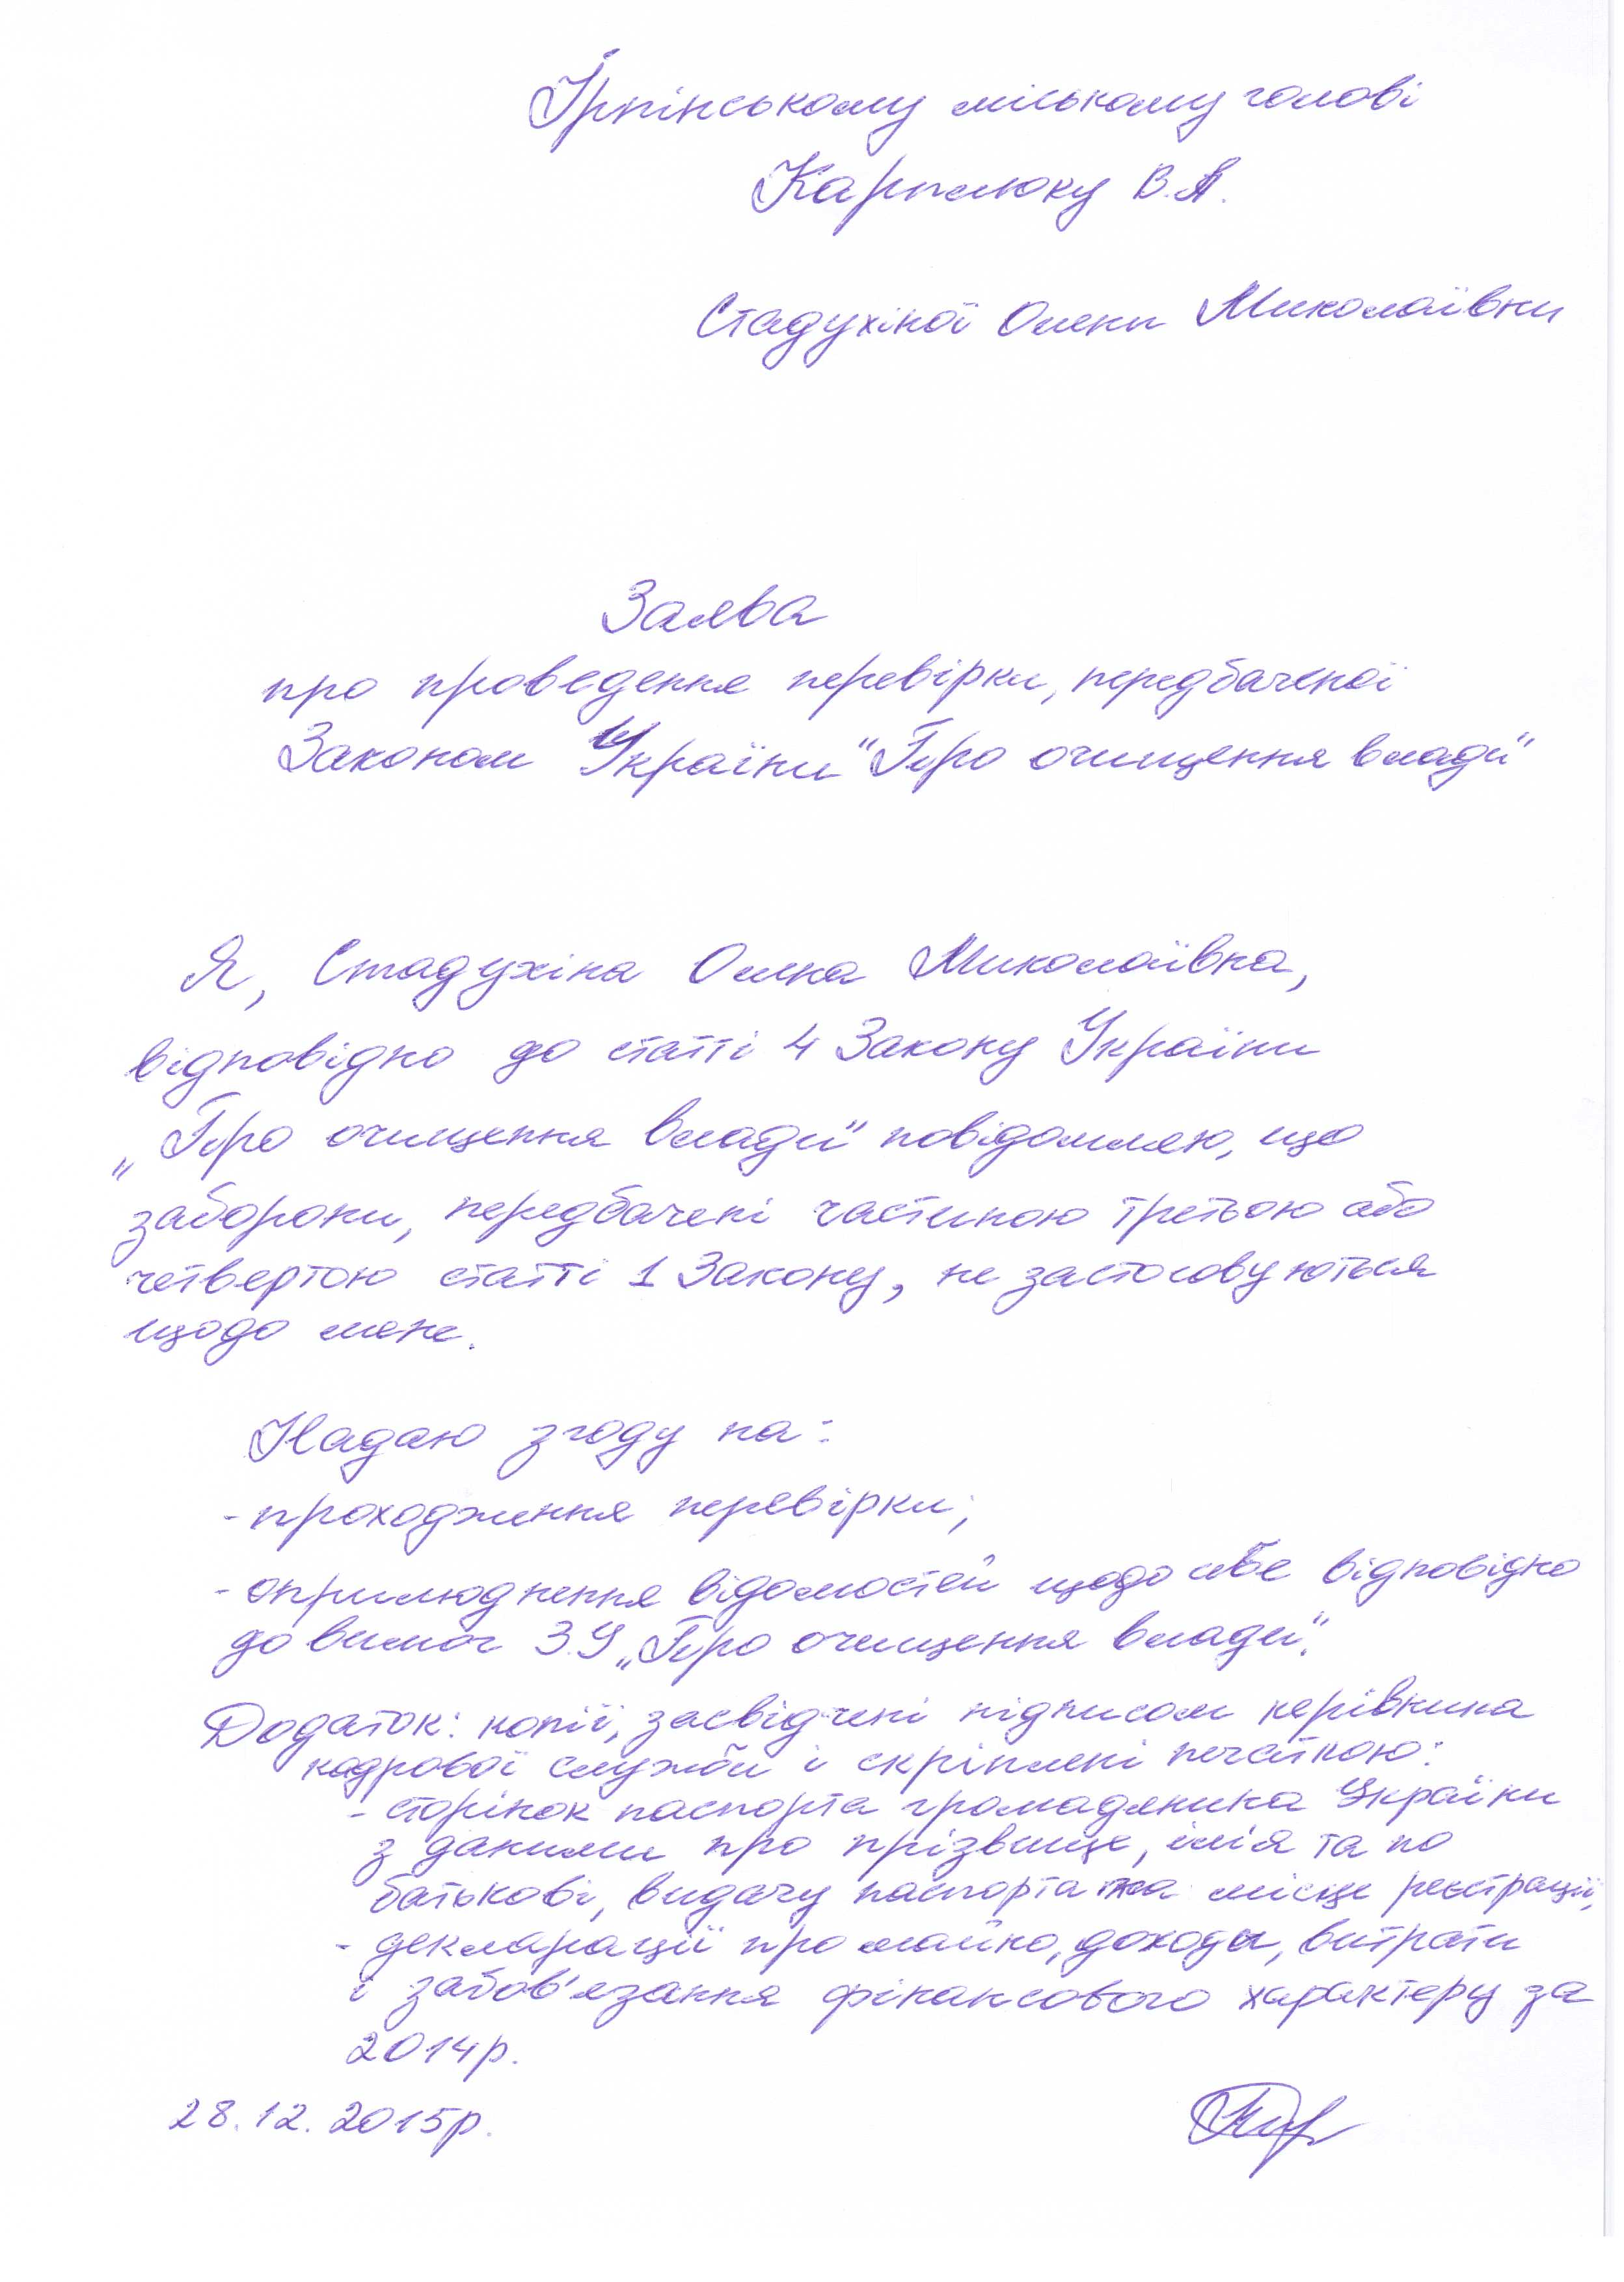 Ірпінському міському голові
Карплюку В.А.
Стадухіної Олени Миколаївни
Заява
про проведення перевірки, передбаченої
Законом України "Про очищення влади"
Я, Стадухіна Олена Миколаївна,
відповідно до статті 4 Закону України
„Про очищення влади" повідомляю, що
заборони, передбачені частиною третьою або
четвертою статті 1 Закону, не застосовуються
щодо мене.
Надаю згоду на:
- проходження перевірки;
- оприлюднення відомостей щодо себе відповідно
до вимог З.У „Про очищення влади".
Додаток: копії, засвідчені підписом керівника
кадрової служби і скріплені печаткою:
- сторінок паспорта громадянина України
з даними про прізвище, ім'я та по
батькові, видачу паспорта та місце реєстрації,
- декларації про майно, доходи, витрати
і забов'язання фінансового характеру за
2014р.
28.12.2015р.